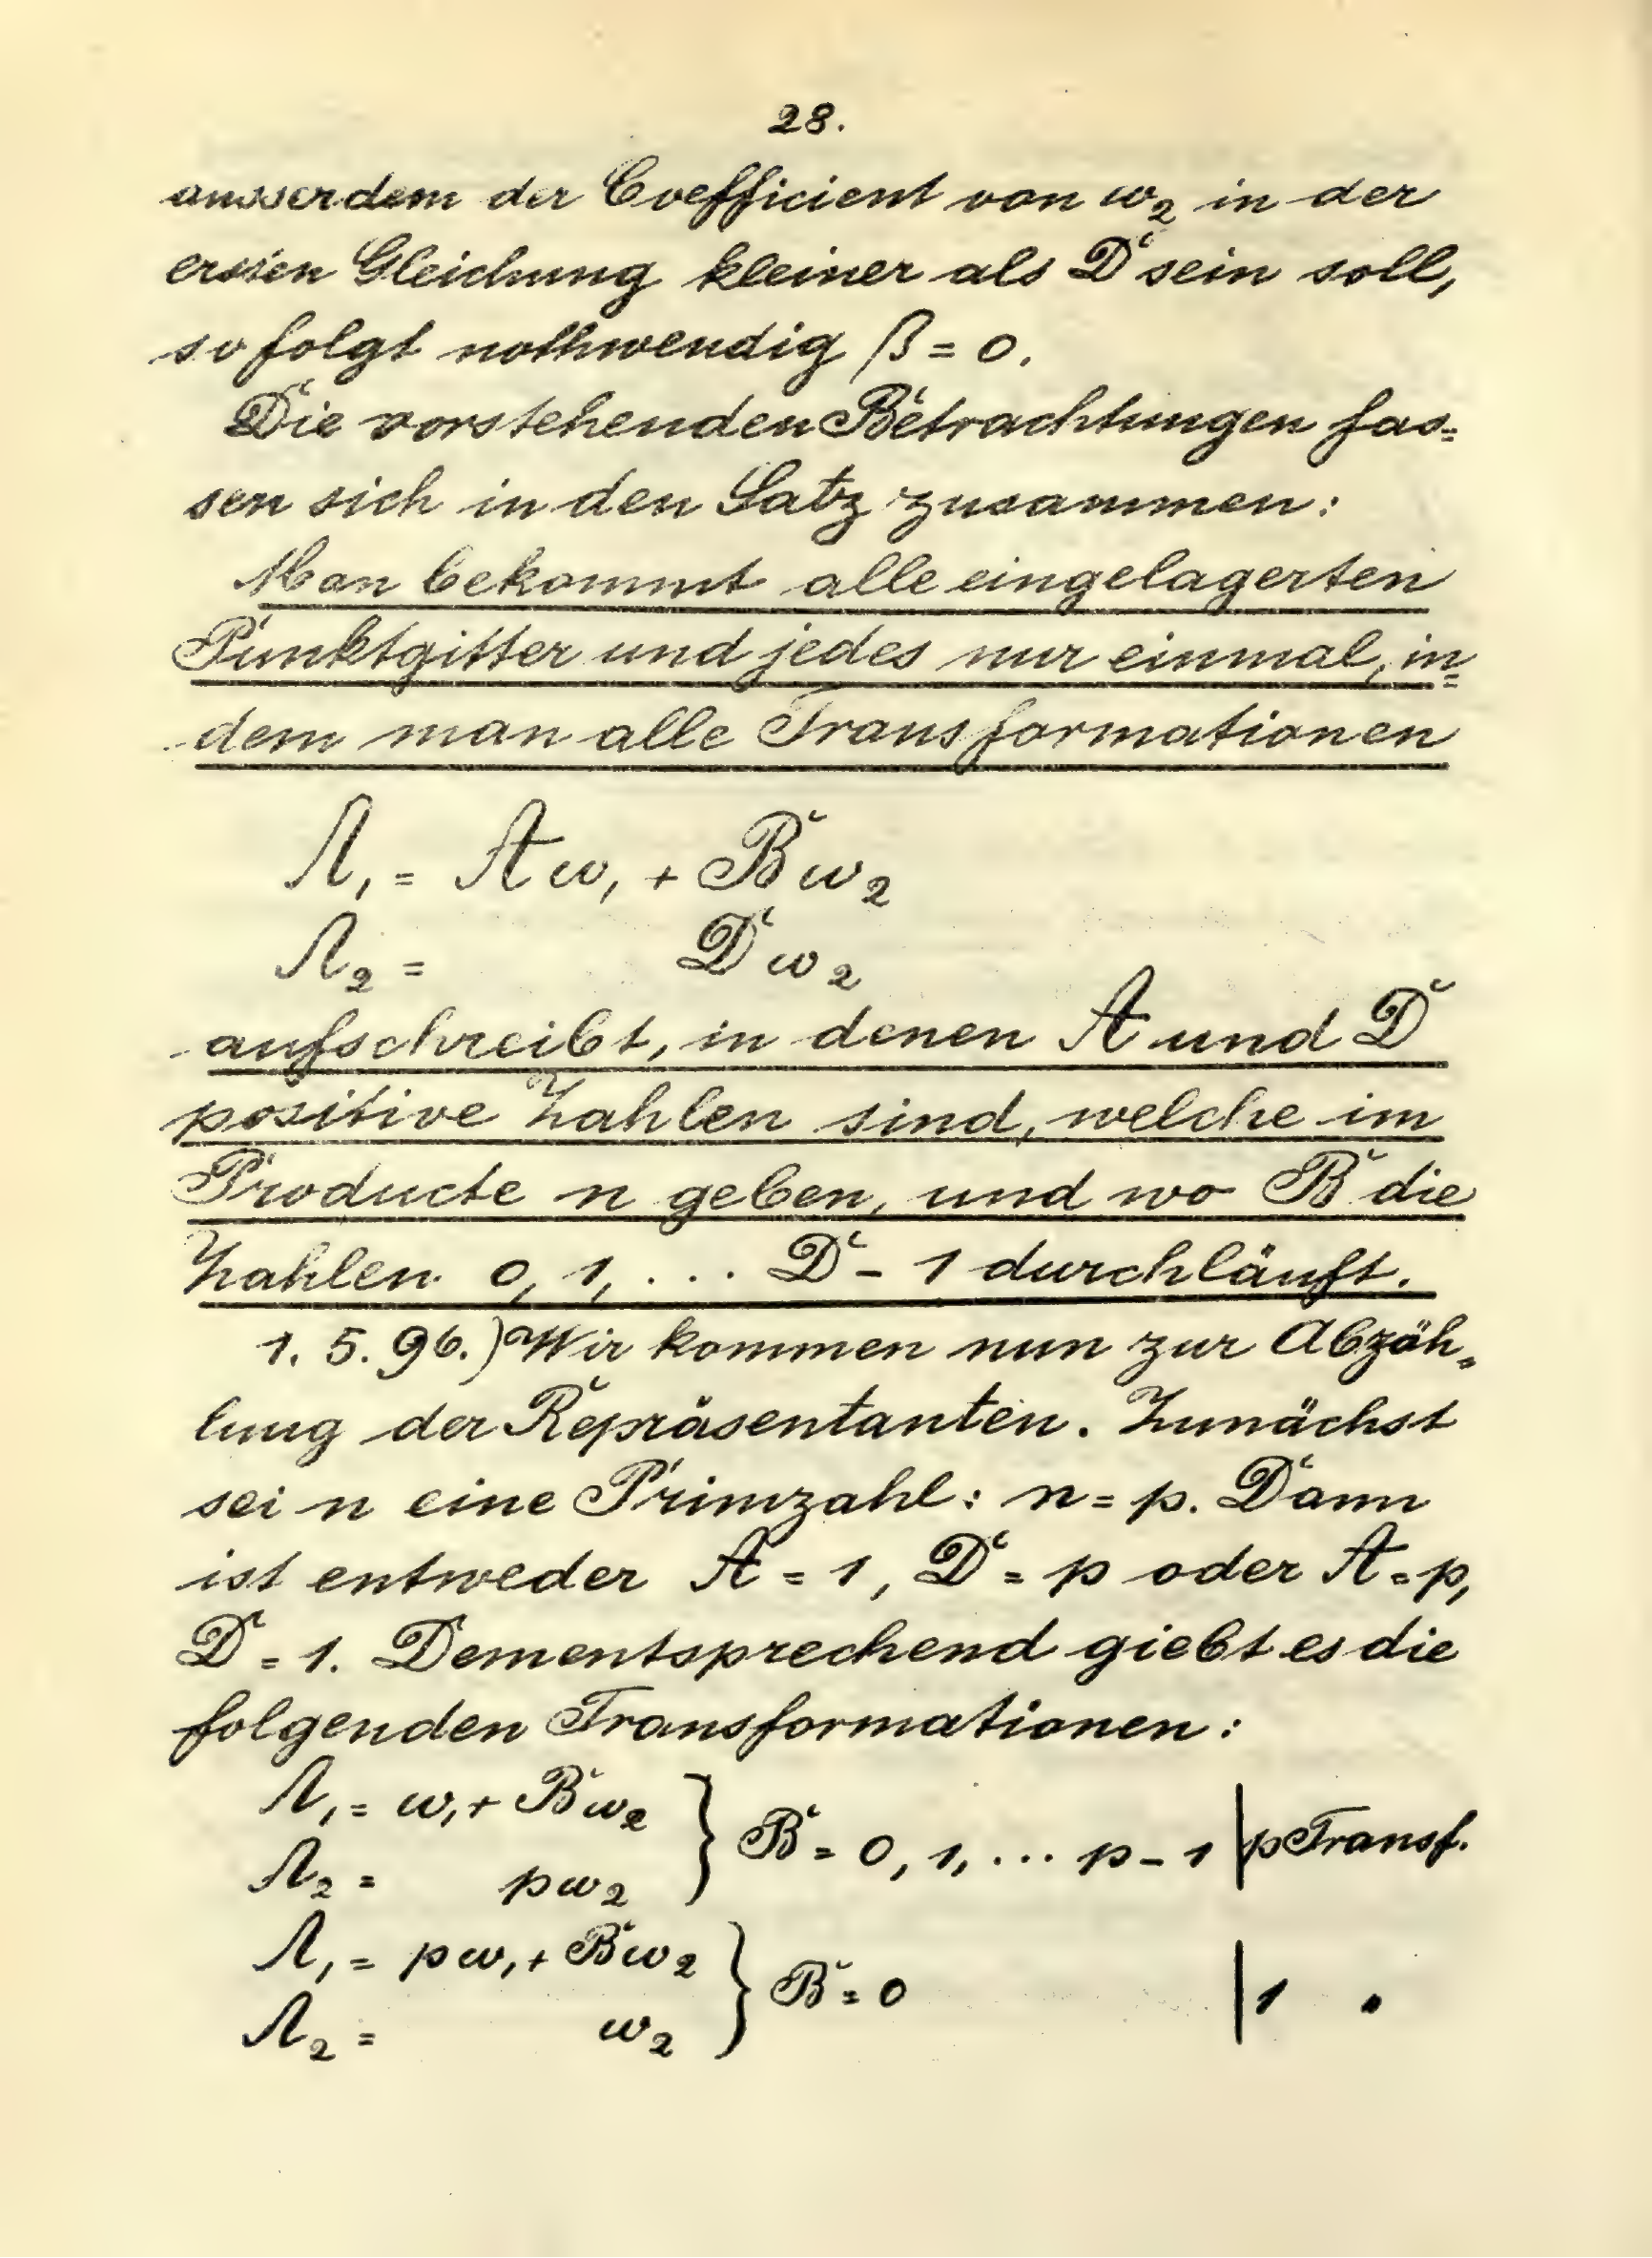 28.
ausserdem der Coefficient von ω₂ in der
ersten Gleichung kleiner als D sein soll,
so folgt nothwendig β = 0.
Die vorstehenden Betrachtungen fas=
sen sich in den Satz zusammen:
Man bekommt alle eingelagerten
Punktgitter und jedes nur einmal, in=
dem man alle Transformationen
Λ₁ = Aω₁ + Bω₂
Λ₂ = Dω₂
aufschreibt, in denen A und D
positive Zahlen sind, welche im
Producte n geben, und wo B die
Zahlen 0, 1, ... D - 1 durchläuft.
1. 5. 96.) Wir kommen nun zur Abzäh=
lung der Repräsentanten. Zunächst
sei n eine Primzahl: n = p. Dann
ist entweder A = 1, D = p oder A = p,
D = 1. Dementsprechend giebt es die
folgenden Transformationen:
Λ₁ = ω₁ + Bω₂
Λ₂ = pω₂ } B = 0, 1, ... p - 1 | p Transf.
Λ₁ = pω₁ + Bω₂
Λ₂ = ω₂ } B = 0 | 1 "